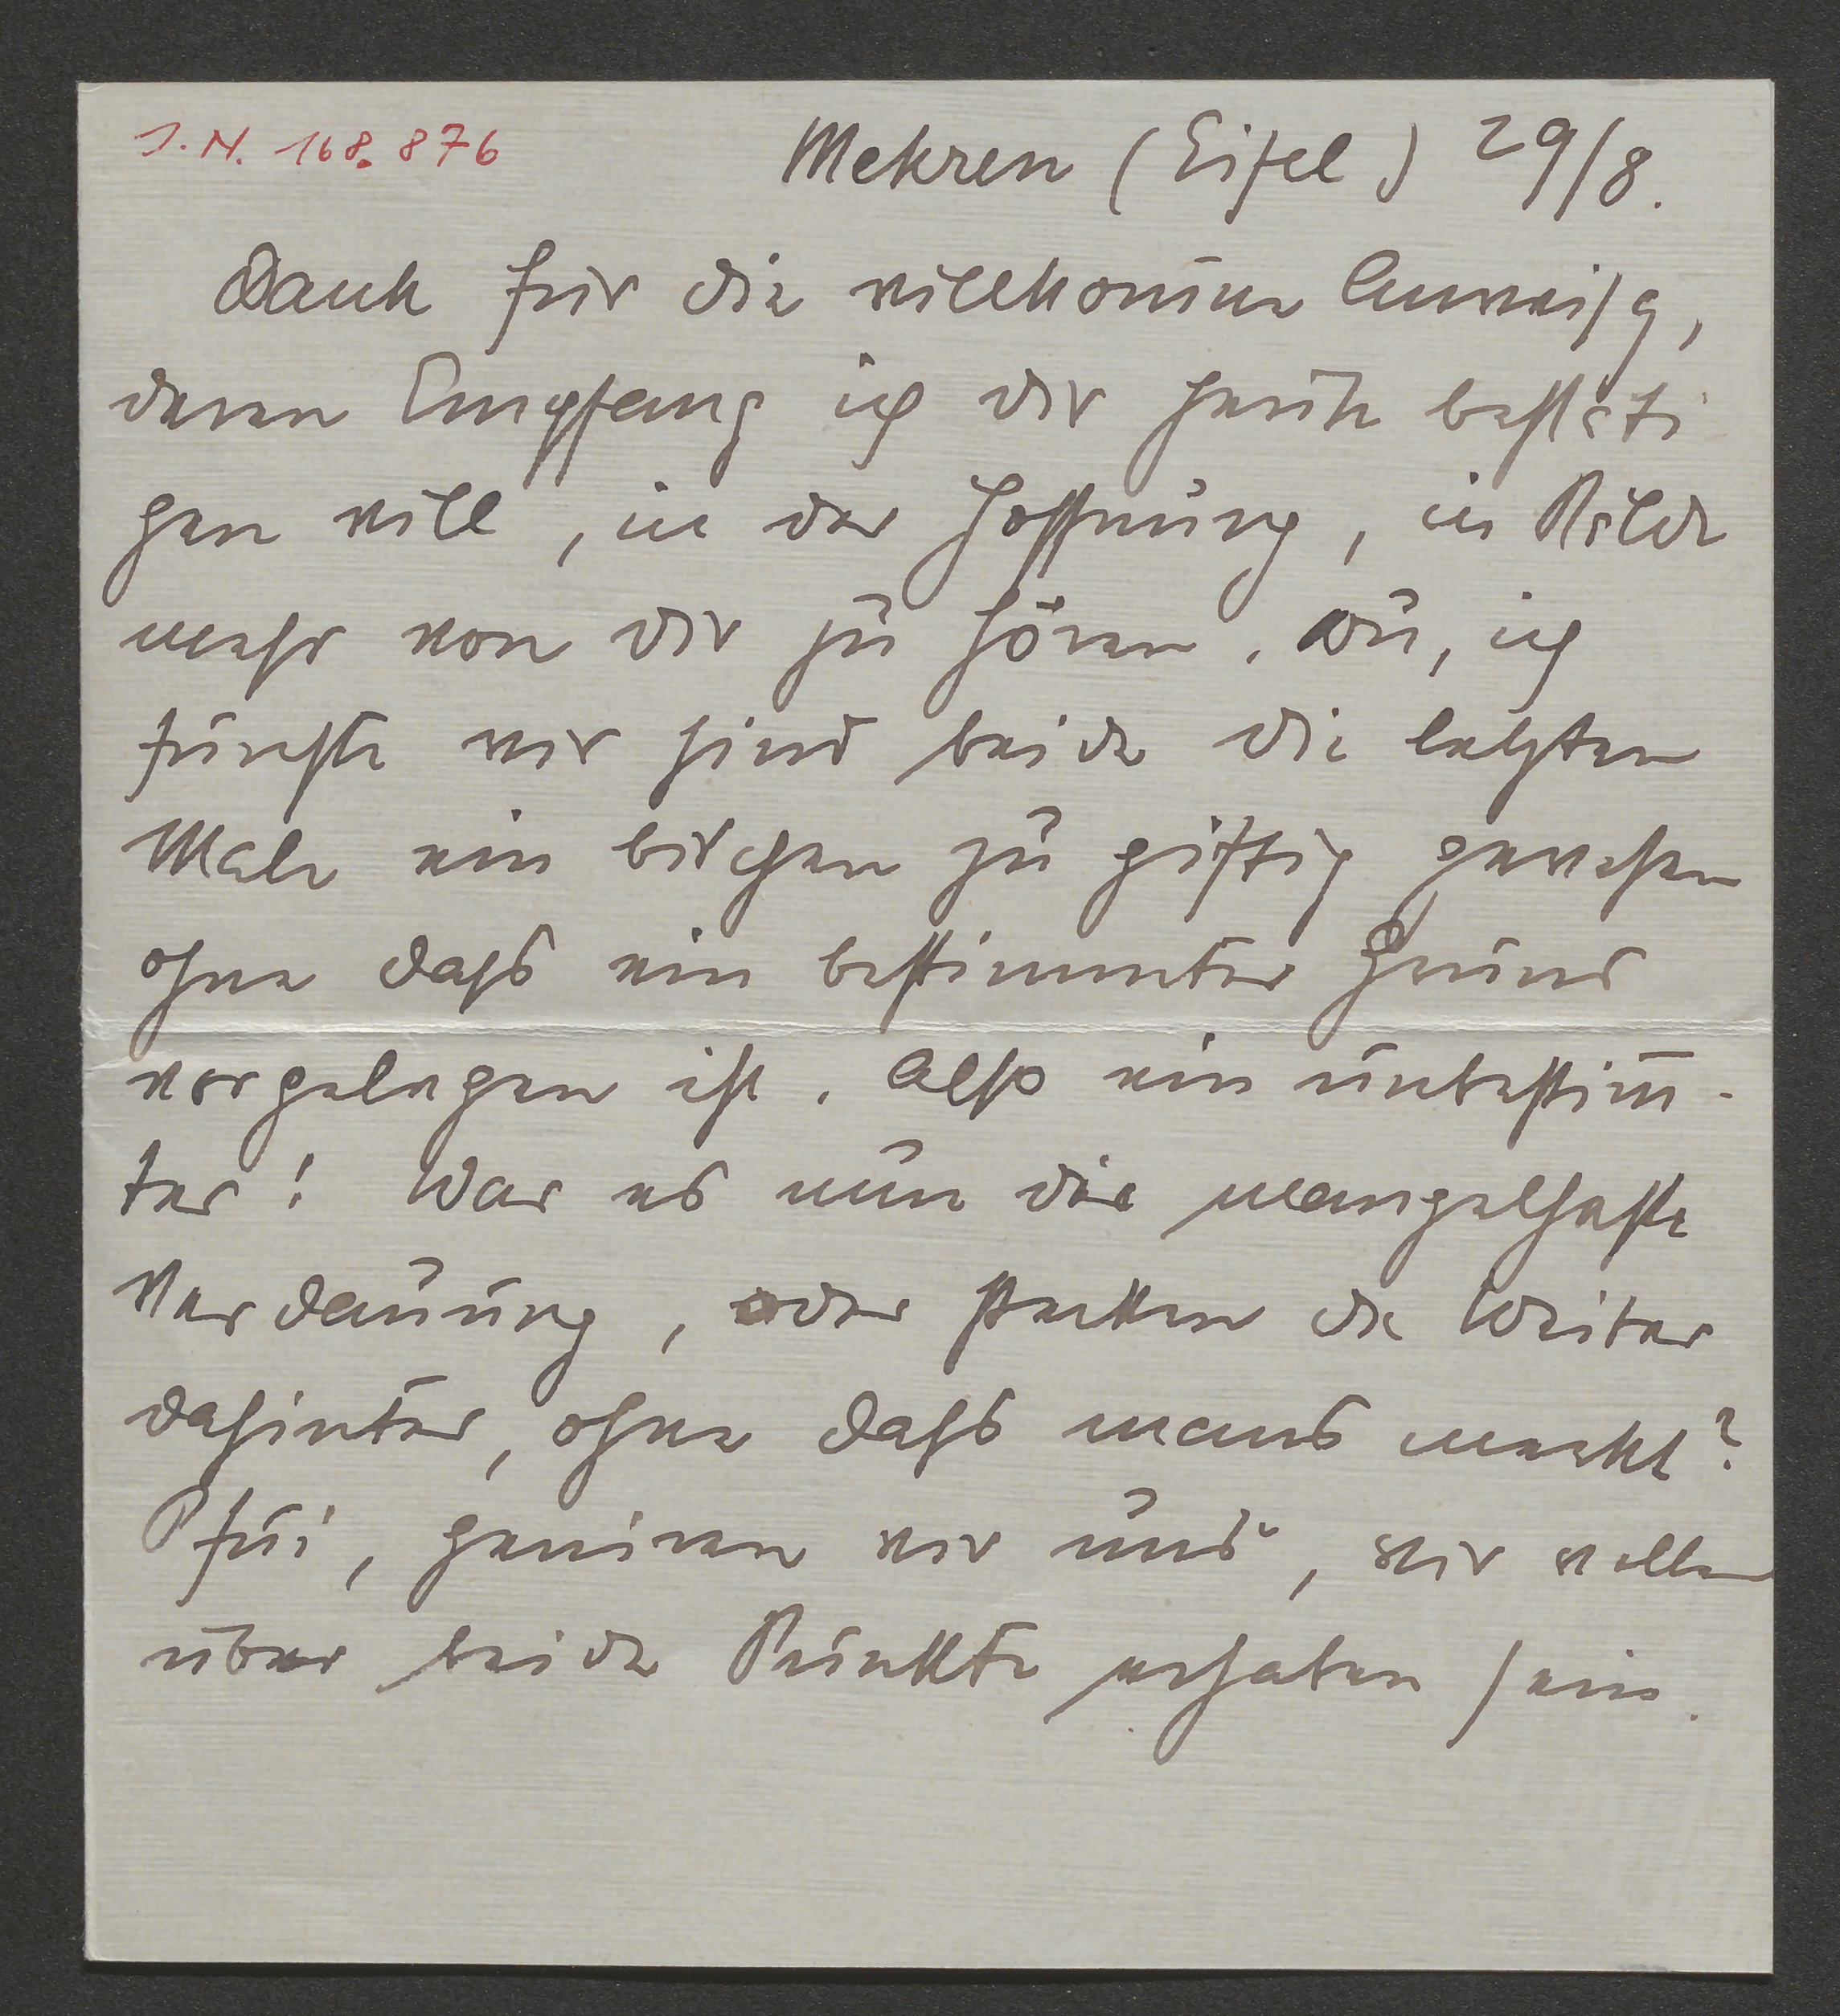 J.N. 168.876
Mehren (Eifel) 29/8.
Dank für die willkom̅ne Anweisg,
deren Empfang ich dir heute bestäti
gen will, in der Hoffnung, in Bälde
mehr von dir zu hören. Du, ich
fürchte wir sind beide die letzten
Male ein bischen zu giftig gewesen
ohne dass ein bestimmter Grund
vorgelegen ist. Also ein unbestim̅-
ter! War es nun die mangelhafte
Verdauung, oder stecken die Weiber
dahinter, ohne dass mans merkt?
Pfui, geniren wir uns, wir wollen
über beide Punkte erhaben sein.